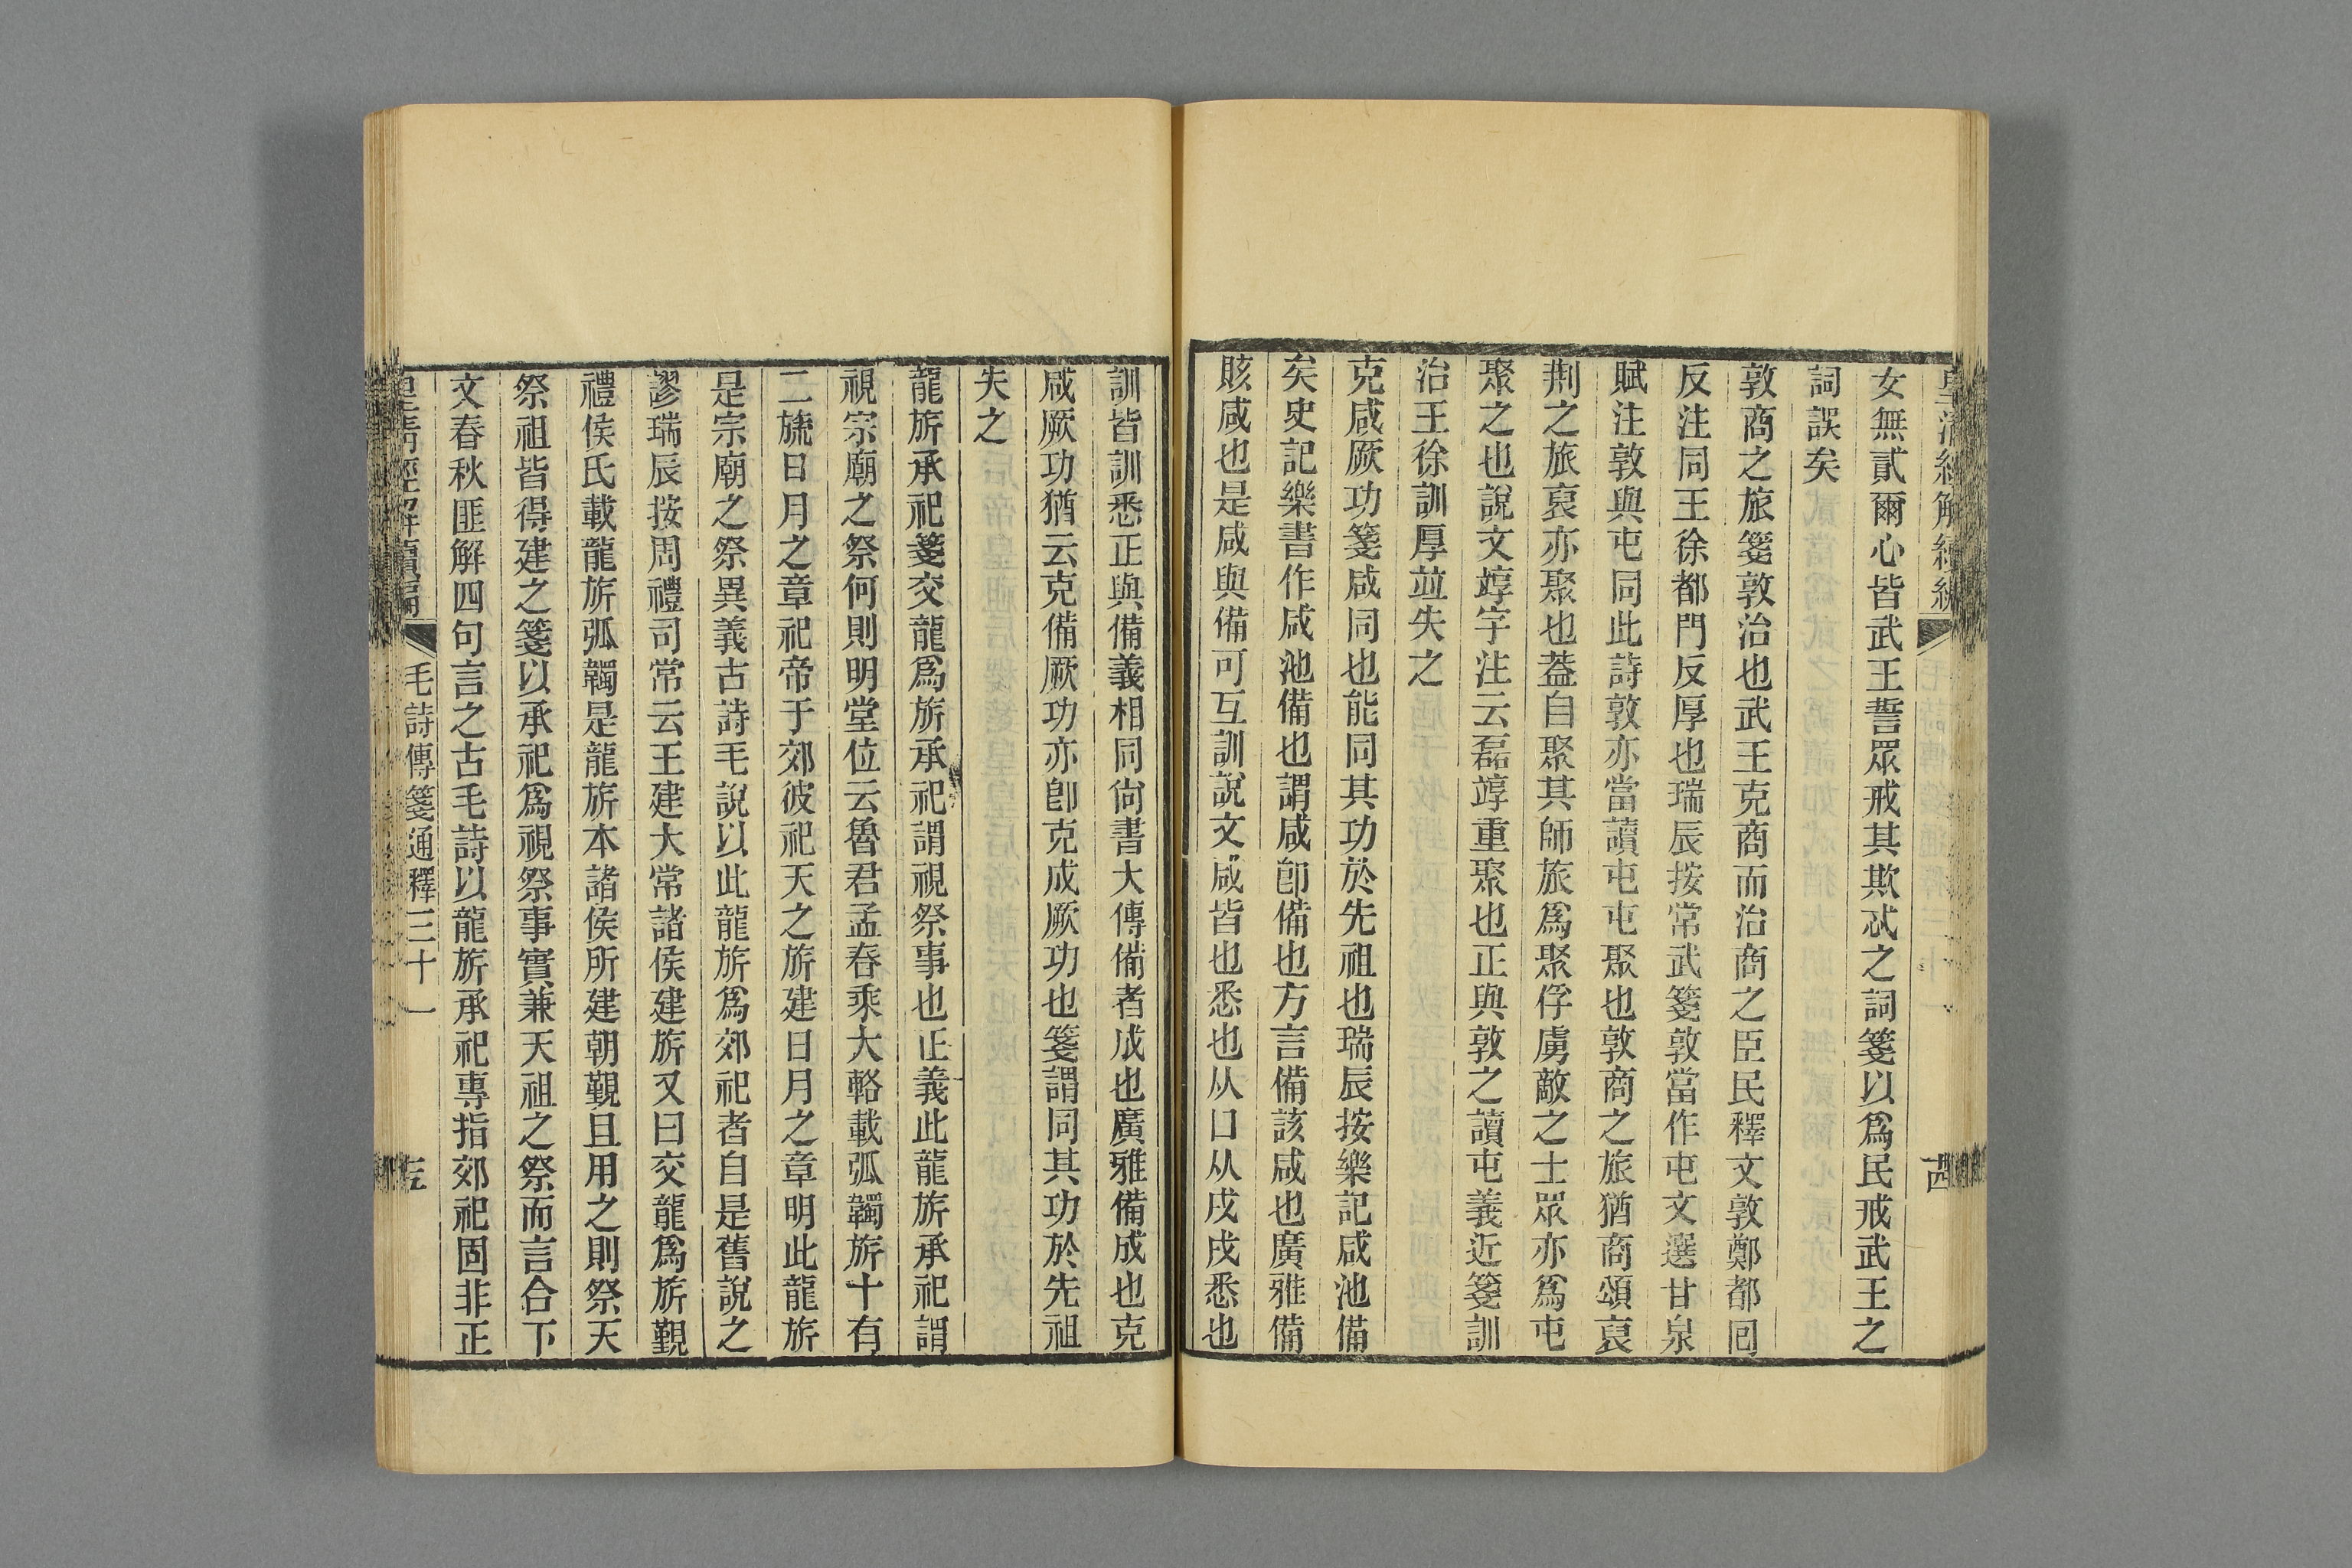 皇清經解續編
西
女無貳爾心皆武王誓眾戒其欺忒之詞箋以爲民戒武王之
詞誤矣
敦商之旅箋敦治也武王克商而治商之臣民釋文敦鄭都回
反注同王徐都門反厚也瑞辰按常武箋敦當作屯文選甘泉
賦注敦與屯同此詩敦亦當讀屯屯聚也敦商之旅猶商頌裒
荆之旅裒亦聚也葢自聚其師旅爲聚俘虜敵之士眾亦爲屯
聚之也說文㝄字注云磊㝄重聚也正與敦之讀屯義近箋訓
治王徐訓厚竝失之
克咸厥功箋咸同也能同其功於先祖也瑞辰按樂記咸池備
矣史記樂書作咸池備也謂咸卽備也方言備該咸也廣雅備
賅咸也是咸與備可互訓說文咸皆也悉也从口从戌戌悉也
訓皆訓悉正與備義相同尙書大傳備者成也廣雅備成也克
咸厥功猶云克備厥功亦卽克成厥功也箋謂同其功於先祖
失之
龍旂承祀箋交龍爲旂承祀謂視祭事也正義此龍旂承祀謂
視宗廟之祭何則明堂位云魯君孟春乘大輅載弧韣旂十有
二旒日月之章祀帝于郊彼祀天之旂建日月之章明此龍旂
是宗廟之祭異義古詩毛說以此龍旂爲郊祀者自是舊說之
謬瑞辰按周禮司常云王建大常諸侯建旂又曰交龍爲旂覲
禮侯氏載龍旂弧韣是龍旂本諸侯所建朝覲且用之則祭天
祭祖皆得建之箋以承祀爲視祭事實兼天祖之祭而言合下
文春秋匪解四句言之古毛詩以龍旂承祀專指郊祀固非正
皇清經解續編
毛詩傳箋通釋三十一